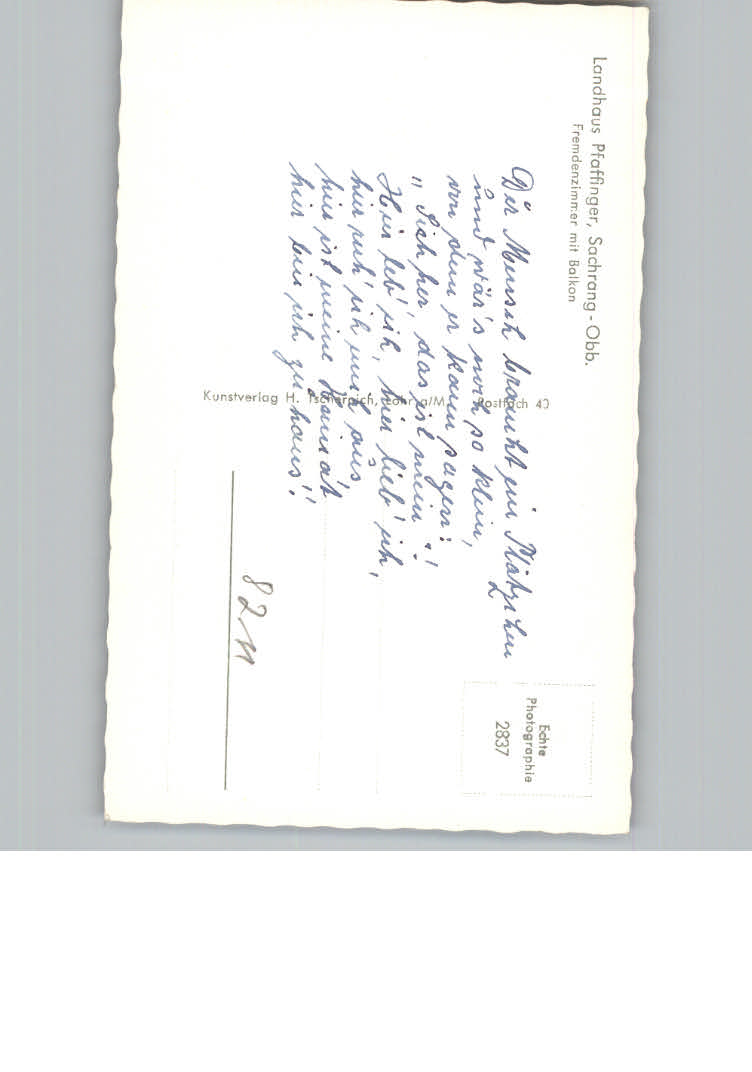 Landhaus Pfaffinger, Sachrang - Obb.
Fremdenzimmer mit Balkon
Der Mensch braucht ein Plätzchen
und wär's noch so klein,
von dem er kann sagen:
"Sieh her, das ist mein"!
Hier leb' ich, hier lieb' ich,
hier ruh' ich mich aus
hier ist meine Heimat
hier bin ich zu haus'!
Kunstverlag H. Tscherpich, Lohr a/M. Postfach 40
Echte
Photographie
2837
8211